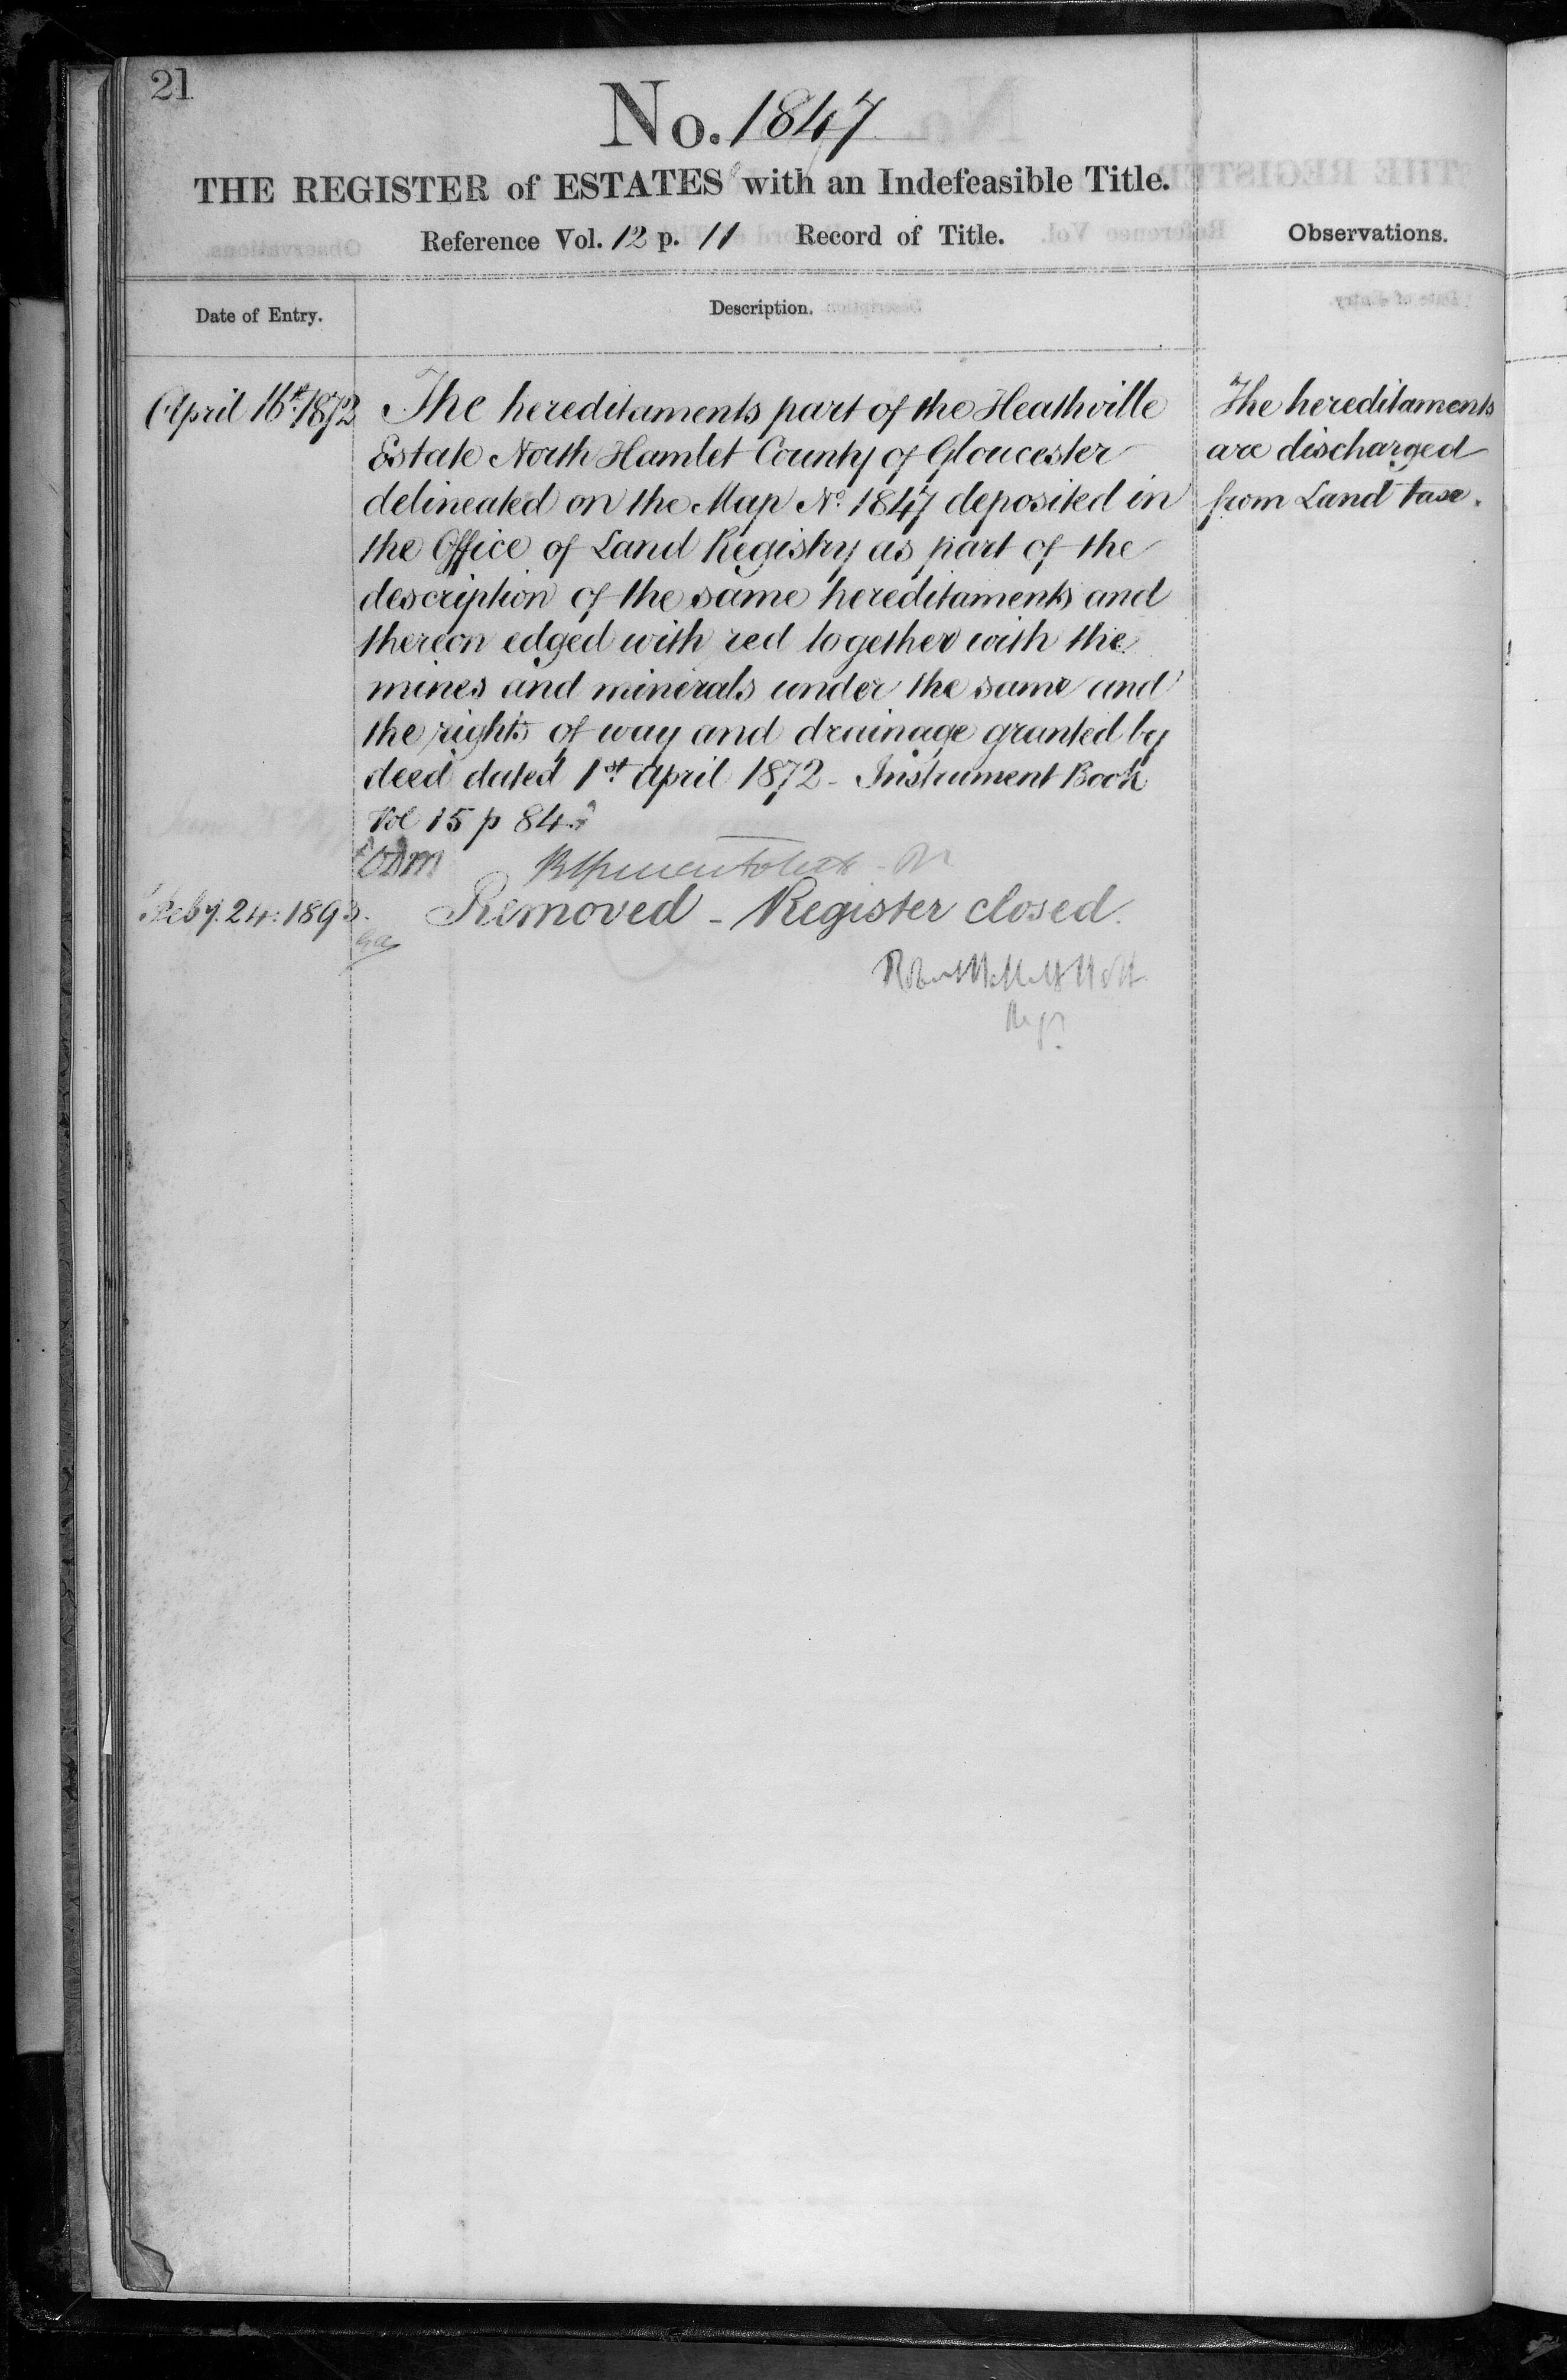 21
No. 1847
THE REGISTER of ESTATES with an Indefeasible Title.
Reference Vol. 12 p. 11 Record of Title.
Observations.
Date of Entry.
Description.
April 16th 1872
The hereditaments part of the Heathville
Estate North Hamlet County of Gloucester
delineated on the Map No. 1847 deposited in
the Office of Land Registry as part of the
description of the same hereditaments and
thereon edged with red together with the
mines and minerals under the same and
the rights of way and drainage granted by
deed dated 1st April 1872 - Instrument Book
Vol 15 p 84.
The hereditaments
are discharged
from Land tax.
Feby. 24. 1893.
Removed - Register closed.
Regr.